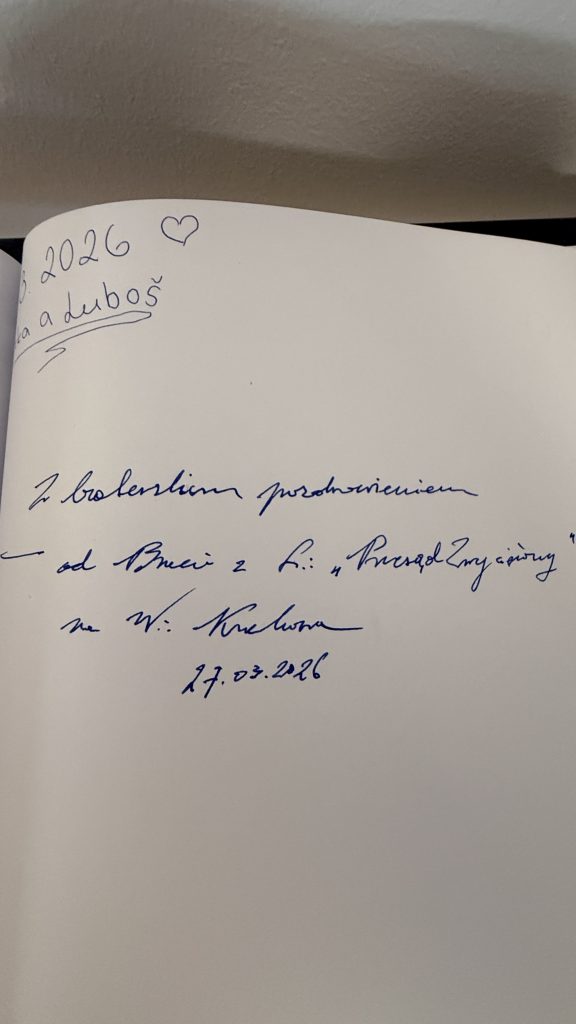 . 2026 ♡
a a Luboš
Z braterskim pozdrowieniem
od Braci z L∴ „Przesąd Zwyciężony"
na W∴ Krakowa
27.03.2026